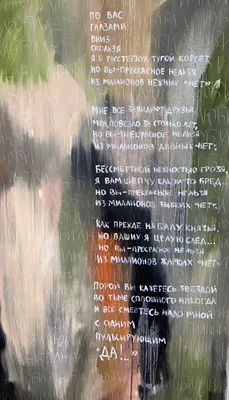 ПО ВАС
ГЛАЗАМИ
ВНИЗ
СКОЛЬЗЯ
Я Б РАССТЕГНУЛ ТУГОЙ КОРСЕТ
НО ВЫ-ПРЕКРАСНОЕ НЕЛЬЗЯ
ИЗ МИЛЛИОНОВ НЕЖНЫХ "НЕТ"
МНЕ ВСЕ ЗАВИДУЮТ ДРУЗЬЯ,
МОЛ, ПОВЕЗЛО ЗА СТОЛЬКО ЛЕТ,
НО ВЫ-ПРЕКРАСНОЕ НЕЛЬЗЯ
ИЗ МИЛЛИОНОВ ДИВНЫХ "НЕТ".
БЕССМЕРТНОЙ НЕЖНОСТЬЮ ГРОЗЯ,
Я ВАМ ШЕПЧУ КАКОЙ-ТО БРЕД,
НО ВЫ-ПРЕКРАСНОЕ НЕЛЬЗЯ
ИЗ МИЛЛИОНОВ ЗЫБКИХ "НЕТ".
КАК ПРЕЖДЕ НА БАЛУ КНЯЗЬЯ,
НО ВАШИХ Я ЦЕЛУЮ СЛЕД...
НО ВЫ-ПРЕКРАСНОЕ НЕЛЬЗЯ
ИЗ МИЛЛИОНОВ ЖАРКИХ "НЕТ"
ПОРОЙ ВЫ КАЖЕТЕСЬ ЗВЕЗДОЙ
ВО ТЬМЕ СПЛОШНОГО НИКОГДА
И ВСЕ СМЕЕТЕСЬ НАДО МНОЙ
С ОДНИМ
ПУЛЬСИРУЮЩИМ
"ДА!.."